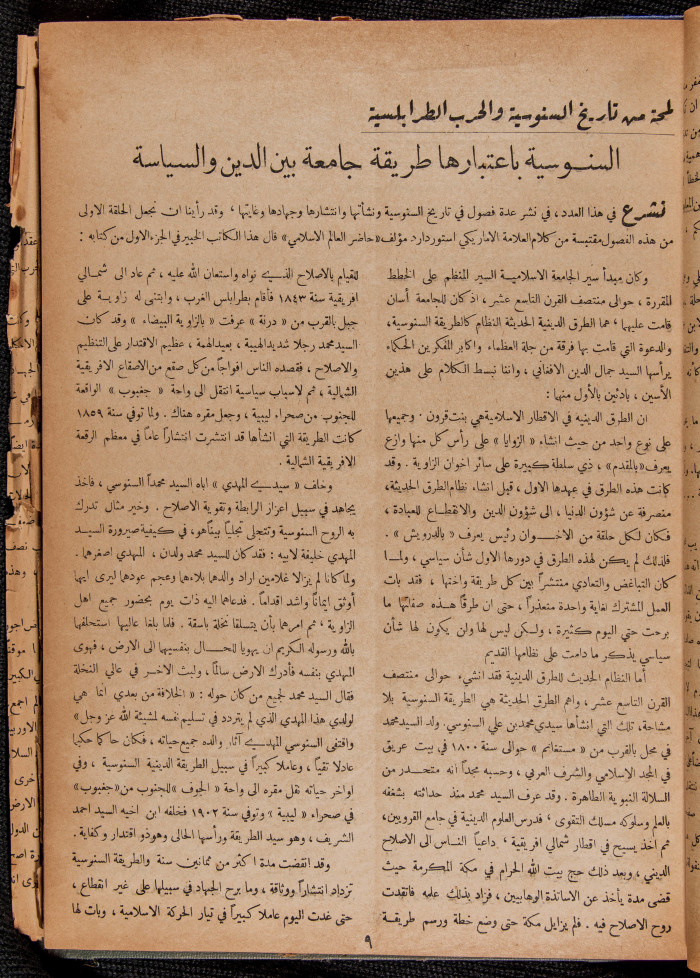 لمحة من تاريخ السنوسية والحرب الطرابلسية
السنوسية باعتبارها طريقة جامعة بين الدين والسياسة
نشرع في هذا العدد، في نشر عدة فصول في تاريخ السنوسية ونشأتها وانتشارها وجهادها وغايتها، وقد رأينا ان نجعل الحلقة الاولى
من هذه الفصول مقتبسة من كلام العلامة الاماريكي استوردارد مؤلف «حاضر العالم الاسلامي» قال هذا الكاتب الخبير في الجزء الاول من كتابه :
وكان مبدأ سير الجامعة الاسلامية السير المنظم على الخطط
المقررة ، حوالى منتصف القرن التاسع عشر ، اذ كان للجامعة أسان
قامت عليهما ، هما الطرق الدينية الحديثة النظام كالطريقة السنوسية،
والدعوة التي قامت بها فرقة من جلة العظماء واكابر المفكرين الحكماء
يرأسها السيد جمال الدين الافغاني ، واننا نبسط الكلام على هذين
الأسين ، بادئين بالأول منهما :
ان الطرق الدينيه في الاقطار الاسلامية هي بنت قرون . وجميعها
على نوع واحد من حيث انشاء « الزوايا » على رأس كل منها وازع
يعرف «بالمقدم» ، ذي سلطة كبيرة على سائر اخوان الزاوية . وقد
كانت هذه الطرق في عهدها الاول ، قبل انشاء نظام الطرق الحديثة،
منصرفة عن شؤون الدنيا ، الى شؤون الدين والانقطاع للعبادة ،
فكان لكل حلقة من الاخوان رئيس يعرف « بالدرويش » .
فلذلك لم يكن لهذه الطرق في دورها الاول شأن سياسي ، ولما
كان التباغض والتعادي منتشراً بين كل طريقة واختها ، فقد بات
العمل المشترك لغاية واحدة متعذراً ، حتى ان طرقاً هذه صفاتها ما
برحت حتي اليوم كثيرة ، ولكن ليس لها ولن يكون لها شأن
سياسي يذكر ما دامت على نظامها القديم
أما النظام الحديث للطرق الدينية فقد انشيء حوالى منتصف
القرن التاسع عشر ، واهم الطرق الحديثة هي الطريقة السنوسية بلا
مشاحة، تلك التي انشأها سيدي محمد بن علي السنوسي. ولد السيد محمد
في محل بالقرب من « مستغانم » حوالى سنة ١٨٠٠ في بيت عريق
في المجد الاسلامي والشرف العربي ، وحسبه مجداً انه متحدر من
السلالة النبوية الطاهرة . وقد عرف السيد محمد منذ حداثته بشغفه
بالعلم وسلوكه مسلك التقوى ، فدرس العلوم الدينية في جامع القرويين،
ثم اخذ يسيح في اقطار شمالي افريقية ، داعياً الناس الى الاصلاح
الديني ، وبعد ذلك حج بيت الله الحرام في مكة المكرمة حيث
قضى مدة يأخذ عن الاساتذة الوهابيين ، فزاد بذلك علمه فاتقدت
روح الاصلاح فيه . فلم يزايل مكة حتى وضع خطة ورسم طريقة
للقيام بالاصلاح الذي نواه واستعان الله عليه ، ثم عاد الى شمالي
افريقية سنة ١٨٤٣ فأقام بطرابلس الغرب ، وابتنى له زاوية على
جبل بالقرب من « درنة » عرفت « بالزاوية البيضاء » وقد كان
السيد محمد رجلا شديد الهيبة ، بعيد الهمة ، عظيم الاقتدار على التنظيم
والاصلاح ، فقصده الناس افواجاً من كل صقع من الاصقاع الافريقية
الشمالية ، ثم لاسباب سياسية انتقل الى واحة « جغبوب » الواقعة
للجنوب من صحراء ليبية ، وجعل مقره هناك . ولما توفي سنة ١٨٥٩
كانت الطريقة التي انشأها قد انتشرت انتشاراً عاماً في معظم الرقعة
الافريقية الشمالية .
وخلف « سيدي المهدي » اباه السيد محمداً السنوسي ، فاخذ
يجاهد في سبيل اعزاز الرابطة وتقوية الاصلاح . وخير مثال تدرك
به الروح السنوسية وتتجلى تجلياً بيناً هو، في كيفية صيرورة السيد
المهدي خليفة لابيه : فقد كان للسيد محمد ولدن ، المهدي اصغرهما .
ولما كانا لم يزالا غلامين اراد والدهما بلاءهما وعجم عودهما ليرى ايهما
أوثق ايماناً واشد اقداماً . فدعاهما اليه ذات يوم بحضور جميع اهل
الزاوية ، ثم امرهما بأن يتسلقا نخلة باسقة . فلما بلغا عاليها استحلفهما
بالله ورسوله الكريم ان يهويا للحال بنفسيهما الى الارض ، فهوى
المهدي بنفسه فأدرك الارض سالماً ، ولبث الاخر في عالي النخلة
فقال السيد محمد لجميع من كان حوله : « الخلافة من بعدي انما هي
لولدي هذا المهدي الذي لم يتردد في تسليم نفسه لمشيئة الله عز وجل »
واقتفى السنوسي المهدي آثار والده جميع حياته ، فكان حاكما حكيما
عادلا تقياً ، وعاملا كبيراً في سبيل الطريقة الدينية السنوسية ، وفي
اواخر حياته نقل مقره الى واحة « الجوف » للجنوب من «جغبوب»
في صحراء « ليبية » وتوفي سنة ١٩٠٢ فخلفه ابن اخيه السيد احمد
الشريف ، وهو سيد الطريقة ورأسها الحالى وهو ذو اقتدار وكفاية .
وقد انقضت مدة اكثر من ثمانين سنة والطريقة السنوسية
تزداد انتشاراً ووثاقة ، وما برح الجهاد في سبيلها على غير انقطاع ،
حتى غدت اليوم عاملا كبيراً في تيار الحركة الاسلامية ، وبات لها
٩